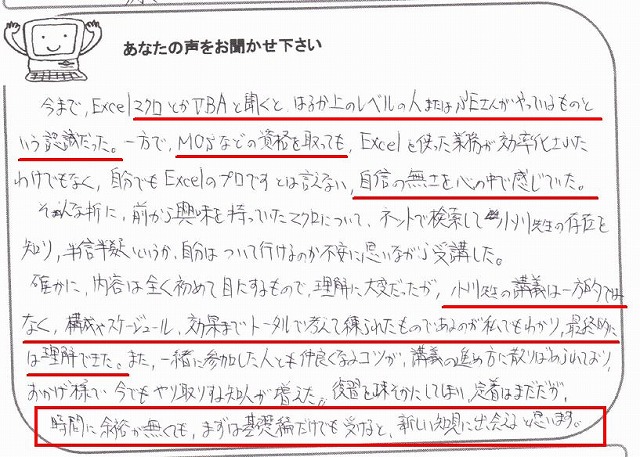 あなたの声をお聞かせ下さい
今まで、ExcelマクロとかVBAと聞くと、はるか上のレベルの人またはSEさんがやっているものと
いう認識だった。一方で、MOSなどの資格を取っても、Excelを使った業務が効率化された
わけでもなく、自分でもExcelのプロですとは言えない、自信の無さを心の中で感じていた。
そんな折に、前から興味を持っていたマクロについて、ネットで検索して小川先生の存在を
知り、半信半疑というか、自分はついて行けるのか不安に思いながら受講した。
確かに、内容は全く初めて目にするもので、理解に大変だったが、小川先生の講義は一方的では
なく、構成やスケージュール、効果までトータルで考えて練られたものであるのが私でもわかり、最終的に
は理解できた。また、一緒に参加した人とも仲良くなるコツが、講義の進め方に散りばめられており、
おかげ様で今でもやり取りする知人が増えた。復習を疎かにしてしまい、定着はまだだが、
時間に余裕が無くても、まずは基礎編だけでも受けると、新しい知見に出会えると思います。